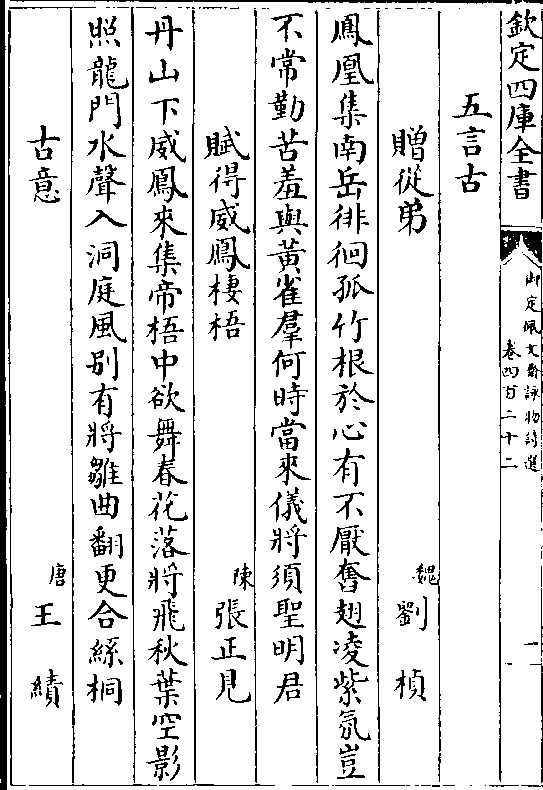 欽定四庫全書
御定佩文齋詠物詩選
卷四百二十二
一
五言古
贈從弟
魏
劉楨
鳳凰集南岳徘徊孤竹根於心有不厭奮翅凌紫氛豈
不常勤苦羞與黃雀羣何時當來儀將須聖明君
賦得威鳳棲梧
陳
張正見
丹山下威鳳來集帝梧中欲舞春花落將飛秋葉空影
照龍門水聲入洞庭風别有將雛曲翻更合絲桐
古意
唐
王績